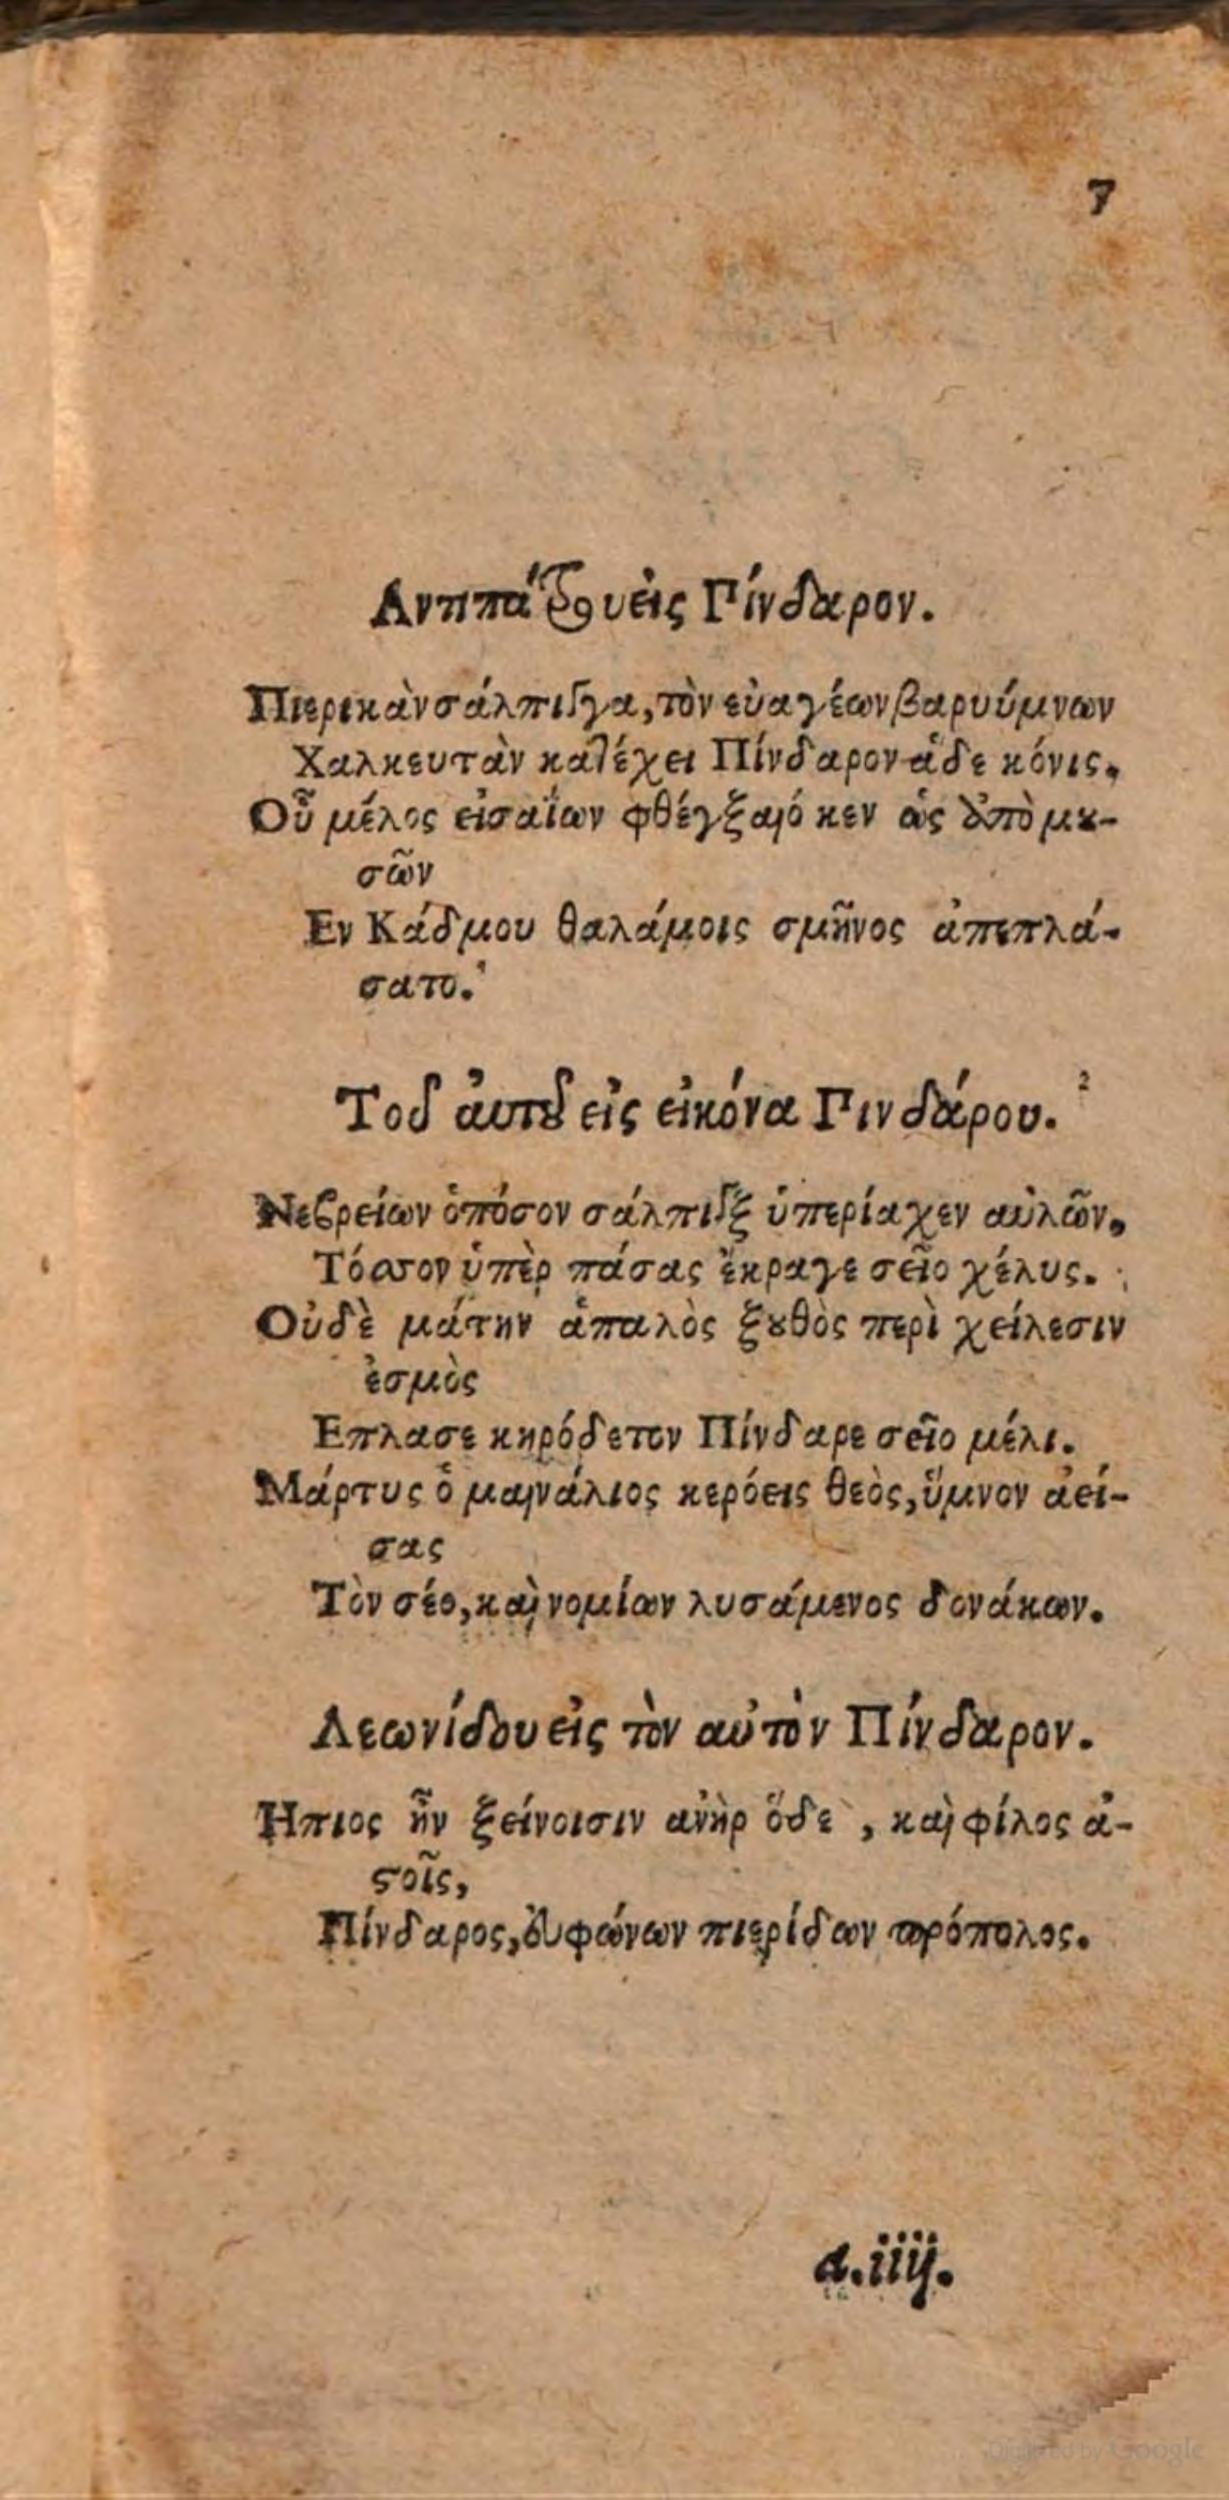 7
Αντιπάτρου εἰς Πίνδαρον.
Πιερικὰν σάλπιγγα, τὸν εὐαγέων βαρυύμνων
Χαλκευτὰν κατέχει Πίνδαρον ἅδε κόνις.
Οὗ μέλος εἰσαΐων φθέγξαιό κεν ὡς ἀπὸ μου-
σῶν
Εν Κάδμου θαλάμοις σμῆνος ἀπεπλά-
σατο.
Τοῦ ἀυτοῦ εἰς εἰκόνα Πινδάρου.
Νεβρείων ὁπόσον σάλπιγξ ὑπερίαχεν αὐλῶν,
Τόσσον ὑπὲρ πάσας ἔκραγε σεῖο χέλυς.
Οὐδὲ μάτην ἁπαλὸς ξουθὸς περὶ χείλεσιν
ἐσμὸς
Επλασε κηρόδετον Πίνδαρε σεῖο μέλι.
Μάρτυς ὁ μαινάλιος κερόεις θεὸς, ὕμνον ἀεί-
σας
Τὸν σέο, καὶ νομίων λυσάμενος δονάκων.
Λεωνίδου εἰς τὸν αὐτὸν Πίνδαρον.
Ηπιος ἦν ξείνοισιν ἀνὴρ ὅδε, καὶ φίλος ἀ-
στοῖς,
Πίνδαρος, εὐφώνων πιερίδων πρόπολος.
a.iiij.
Digitized by Google